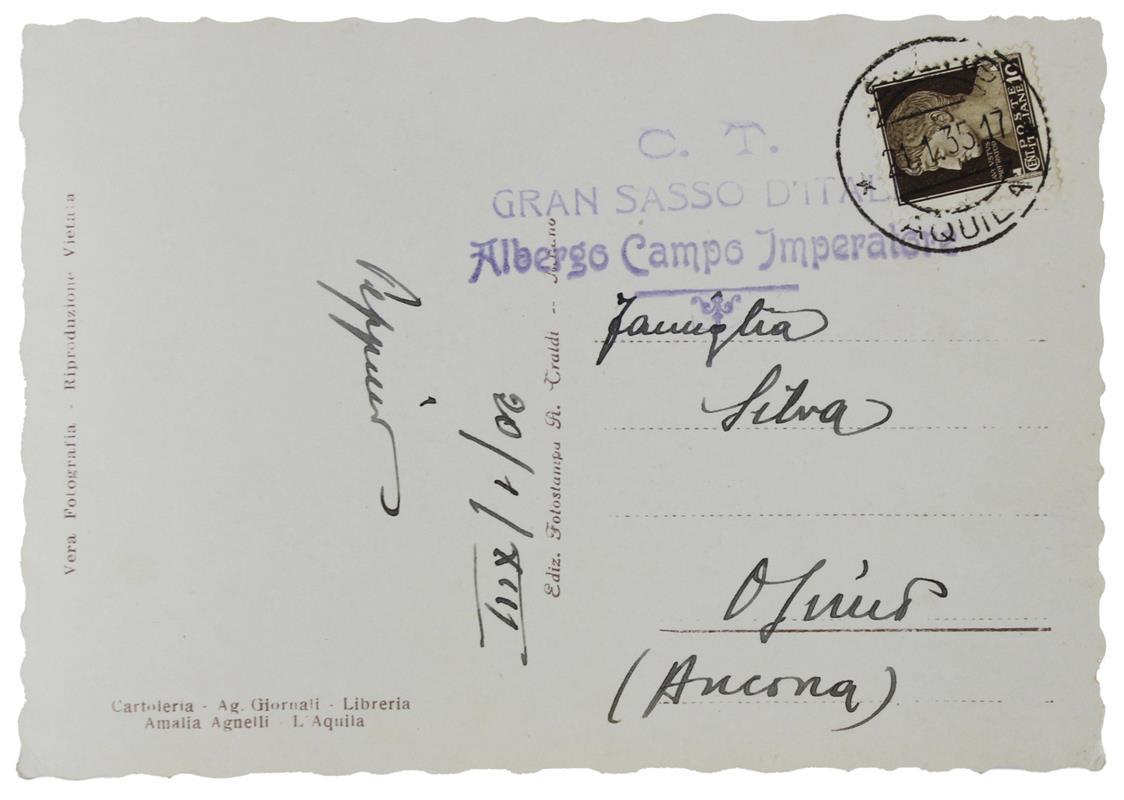 Vera Fotografia - Riproduzione Vietata
Cartoleria - Ag. Giornali - Libreria
Amalia Agnelli - L'Aquila
Peppino
20/1/XIII
Ediz. Fotostampa R. Traldi -- Milano
C. T.
GRAN SASSO D'ITAL
Albergo Campo Imperatore
21.1.35.17
AQUILA
POSTE
ITALIANE
CENT. 10
Famiglia
Silva
Osimo
(Ancona)